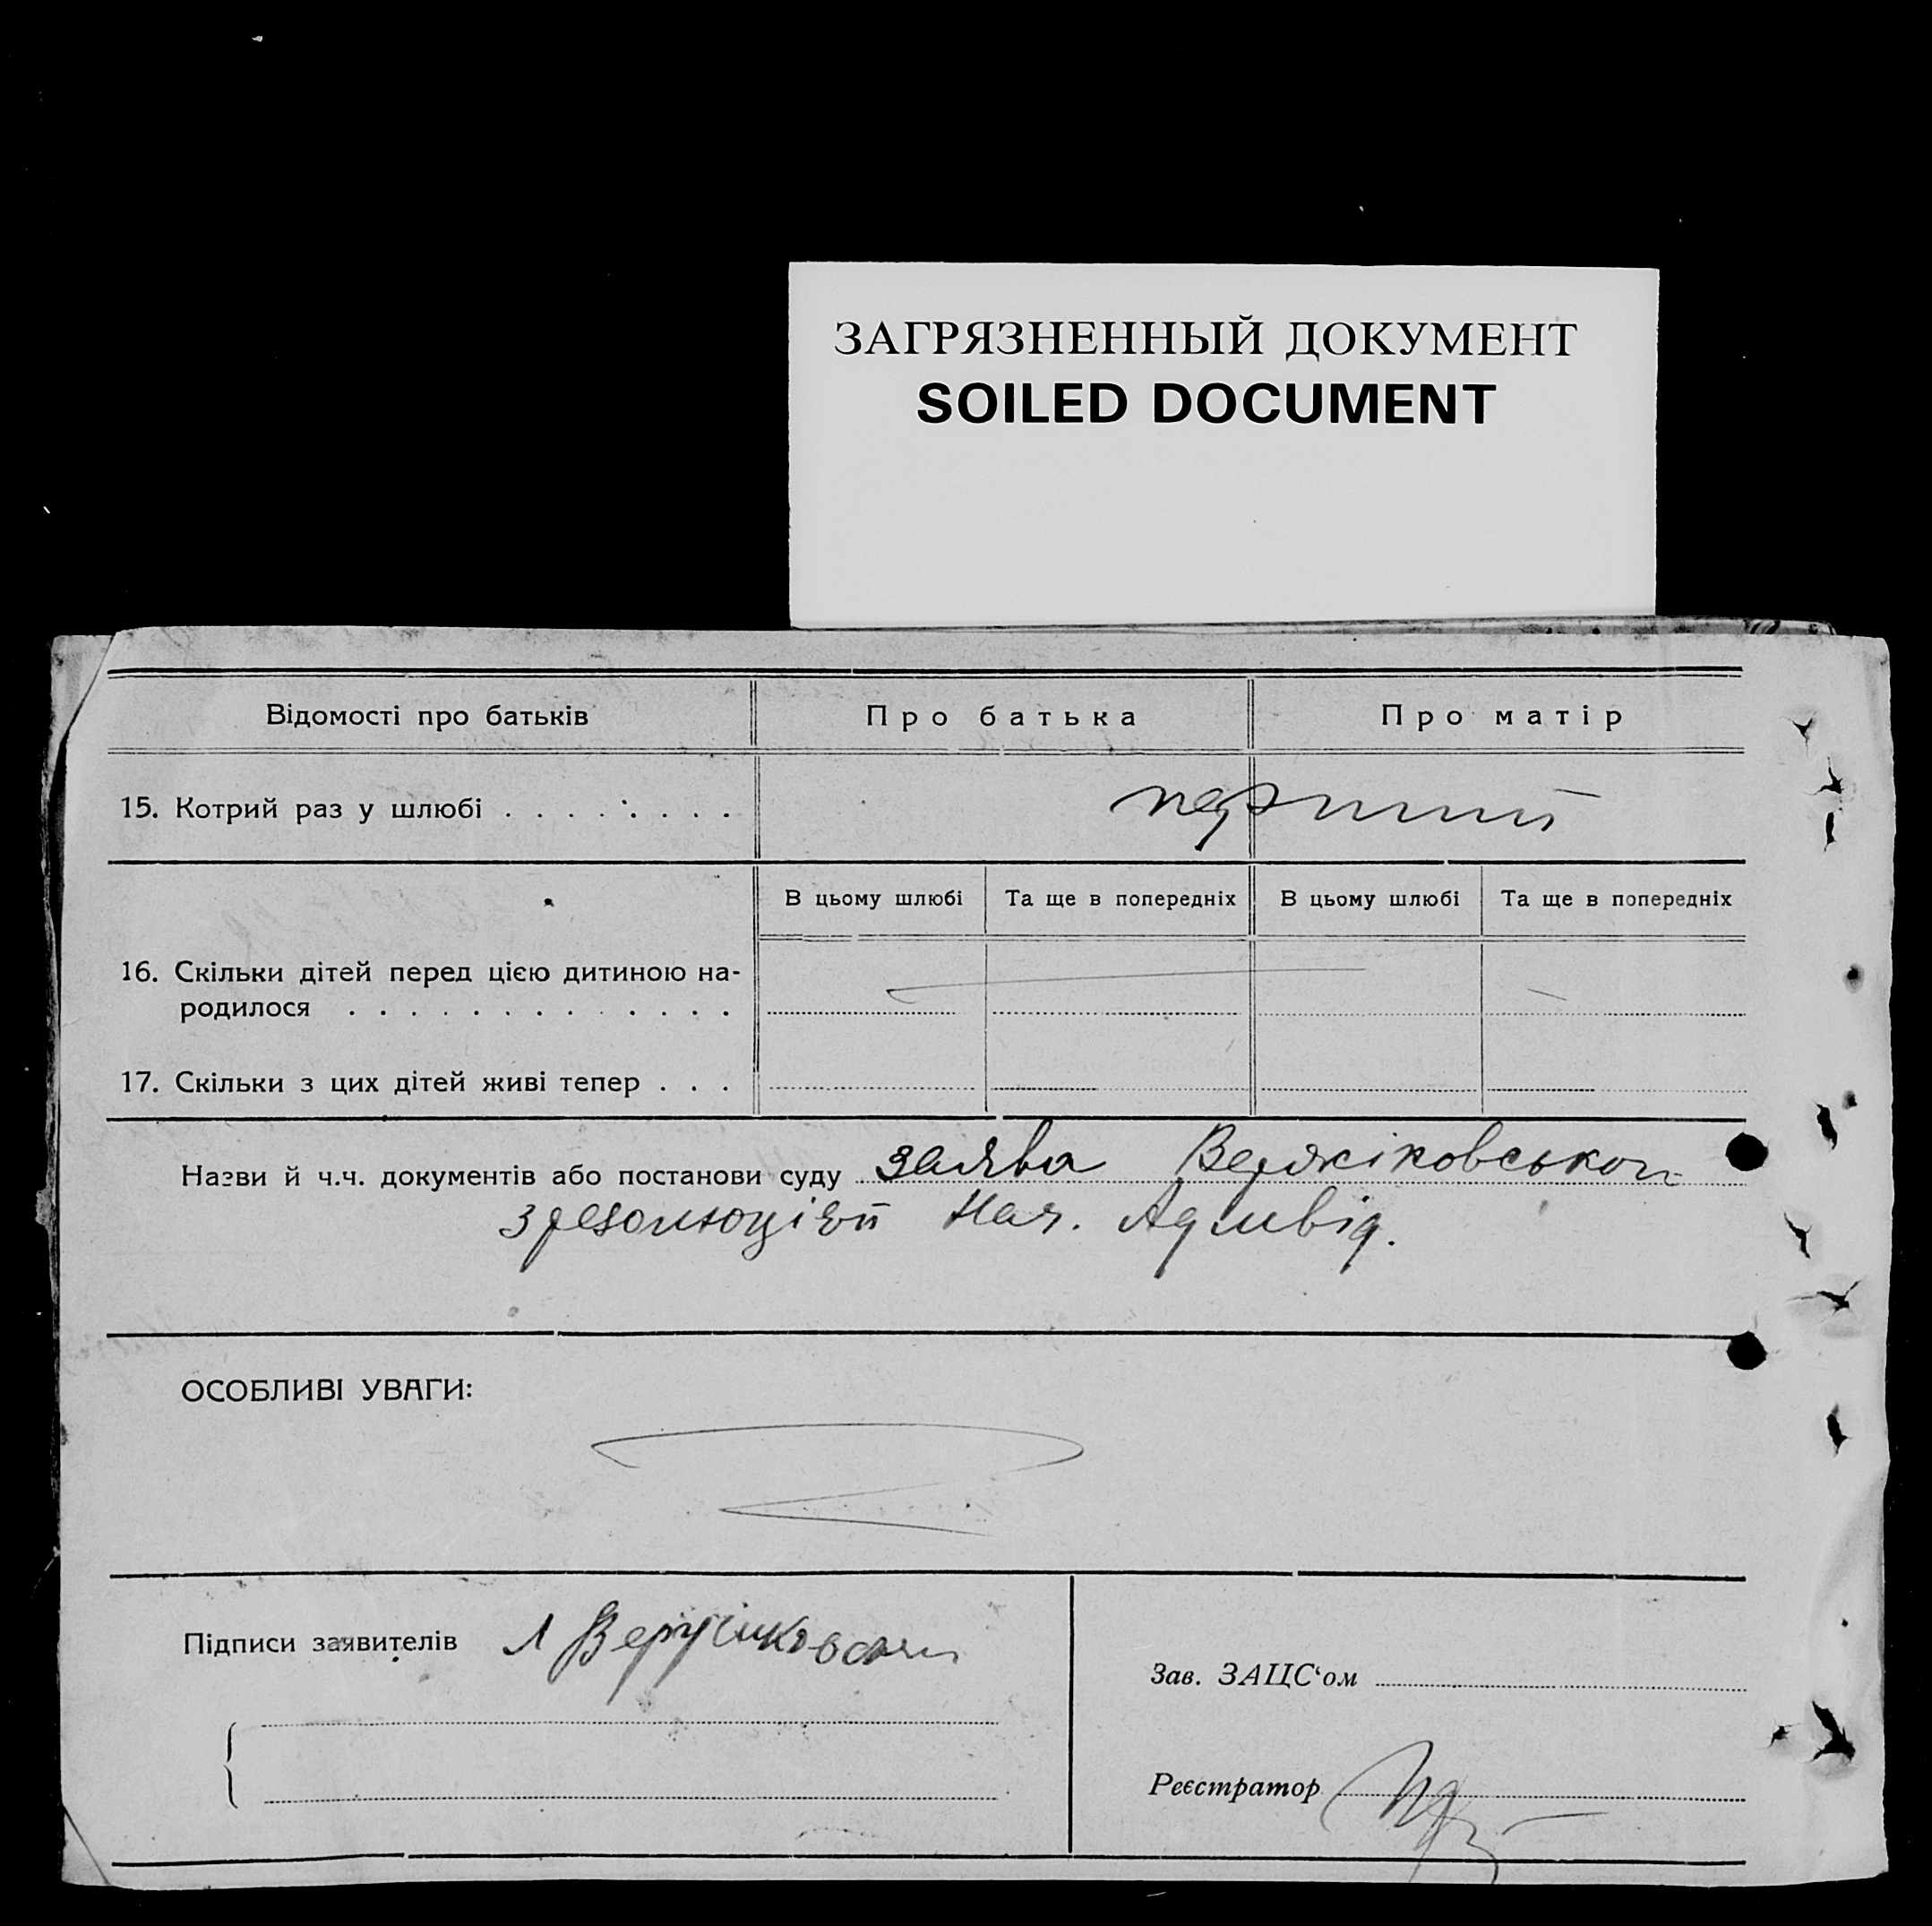 ЗАГРЯЗНЕННЫЙ ДОКУМЕНТ
SOILED DOCUMENT
Відомості про батьків Про батька Про матір
15. Котрий раз у шлюбі . . . . . . . . перший
В цьому шлюбі Та ще в попередніх В цьому шлюбі Та ще в попередніх
16. Скільки дітей перед цією дитиною на-
родилося . . . . . . . . . . . . .
17. Скільки з цих дітей живі тепер . . .
Назви й ч.ч. документів або постанови суду заява Вержіковської
з резолюцією Нач. Адмвід.
ОСОБЛИВІ УВАГИ:
Підписи заявителів Л
Зав. ЗАЦС‘ом
Реєстратор